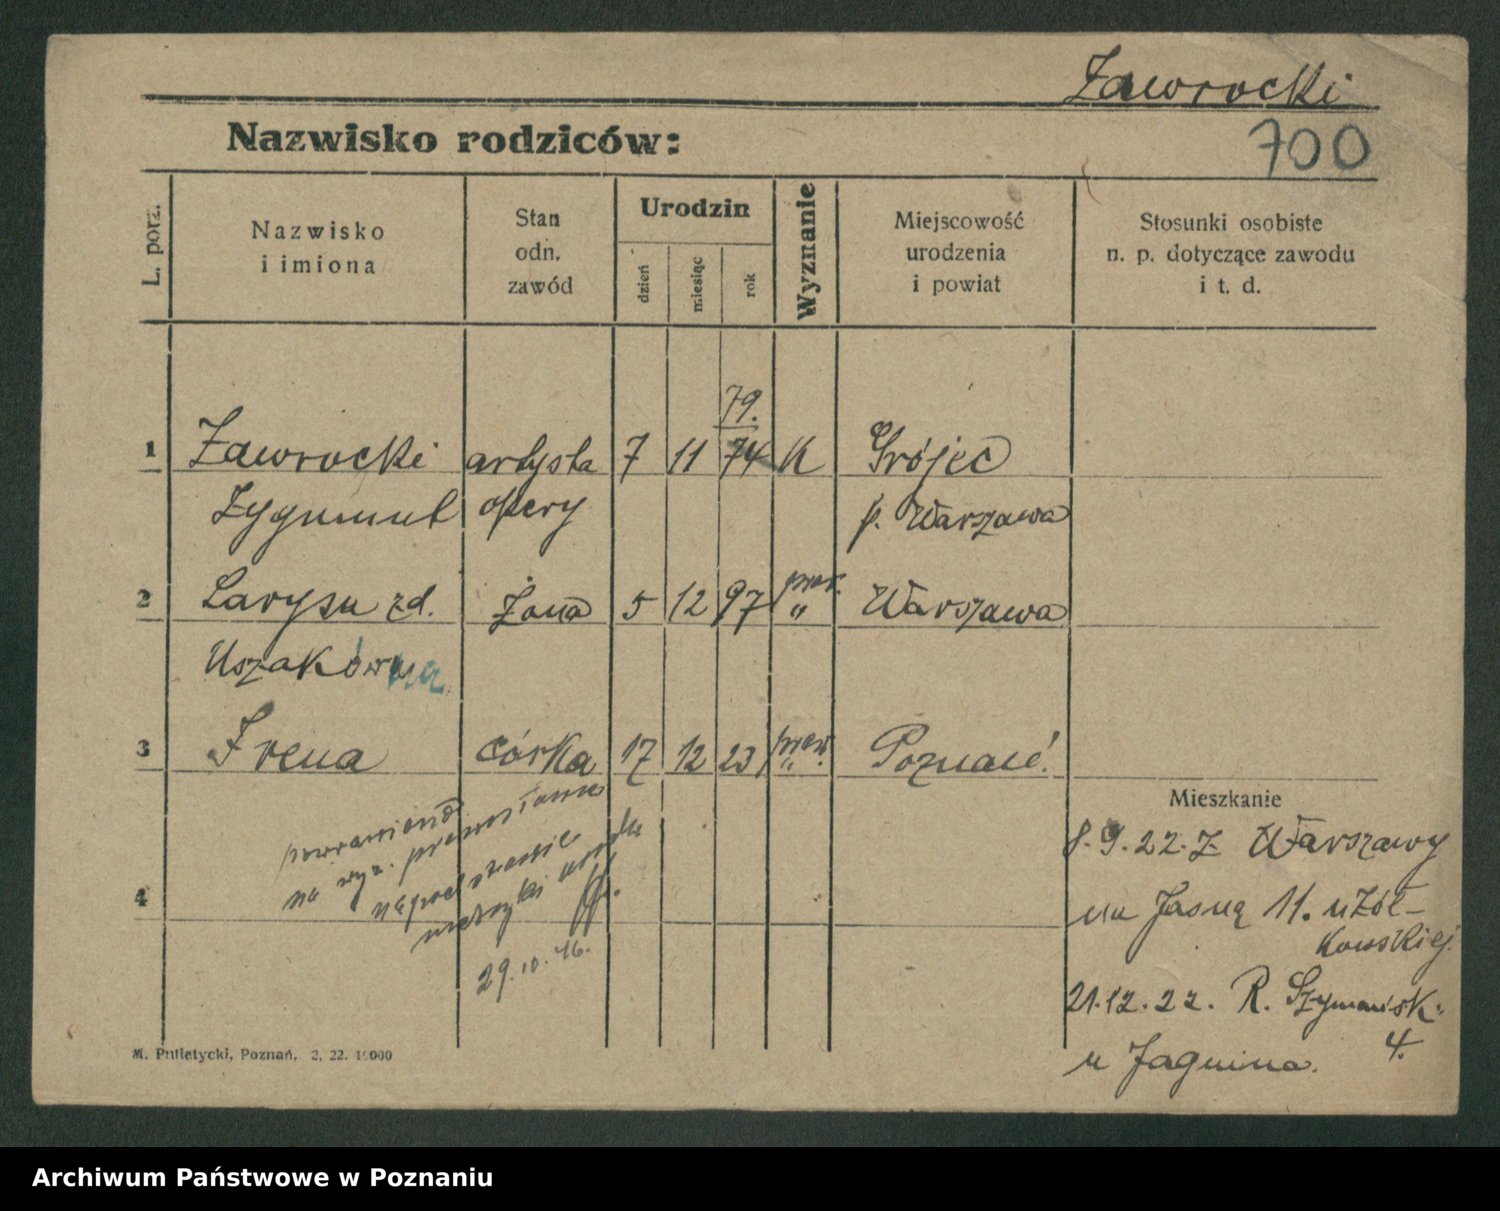 Zaworocki
Nazwisko rodziców:
700
L. porz.
Nazwisko
i imiona
Stan
odn.
zawód
Urodzin
dzień
miesiąc
rok
Wyznanie
Miejscowość
urodzenia
i powiat
Stosunki osobiste
n. p. dotyczące zawodu
i t. d.
79.
1 Zaworocki artysta 7 11 74 K Grójec
Zygmunt opery p. Warszawa
praw.
2 Larysa zd. żona 5 12 97 " Warszawa
Uszakówna
3 Irena córka 17 12 23 praw. " Poznań.
Mieszkanie
4
na wyz. prawosławne
na podstawie
metryki
29.10.46.
8.9.22. Z Warszawy
na Jasną 11. u Żół-
kowskiej.
21.12.22. R. Szymańsk.
4.
u Jagnina.
M. Putiatycki, Poznań. 2. 22. 10000
Archiwum Państwowe w Poznaniu